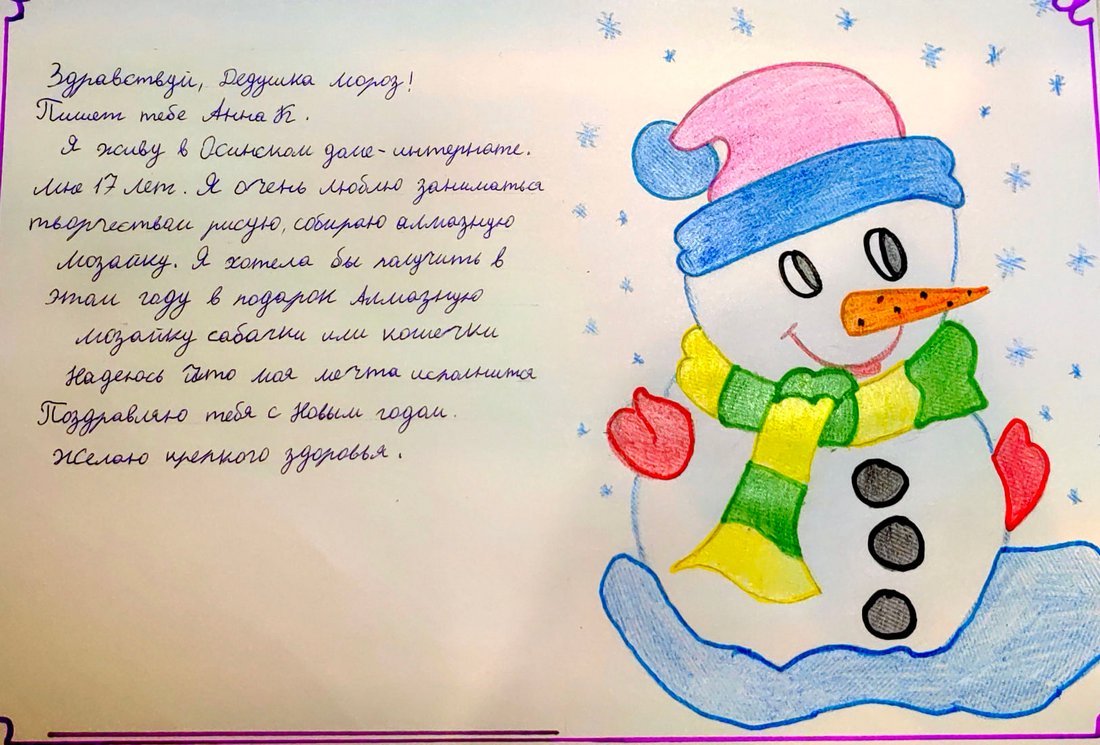 Здравствуй, Дедушка мороз!
Пишет тебе Анна К.
Я живу в Осинском доме-интернате.
Мне 17 лет. Я очень люблю заниматься
творчеством рисую, собираю алмазную
мозайку. Я хотела бы получить в
этом году в подарок Алмазную
мозайку собачки или кошечки
Надеюсь Что моя мечта исполнится
Поздравляю тебя с Новым годом.
Желаю крепкого здоровья.